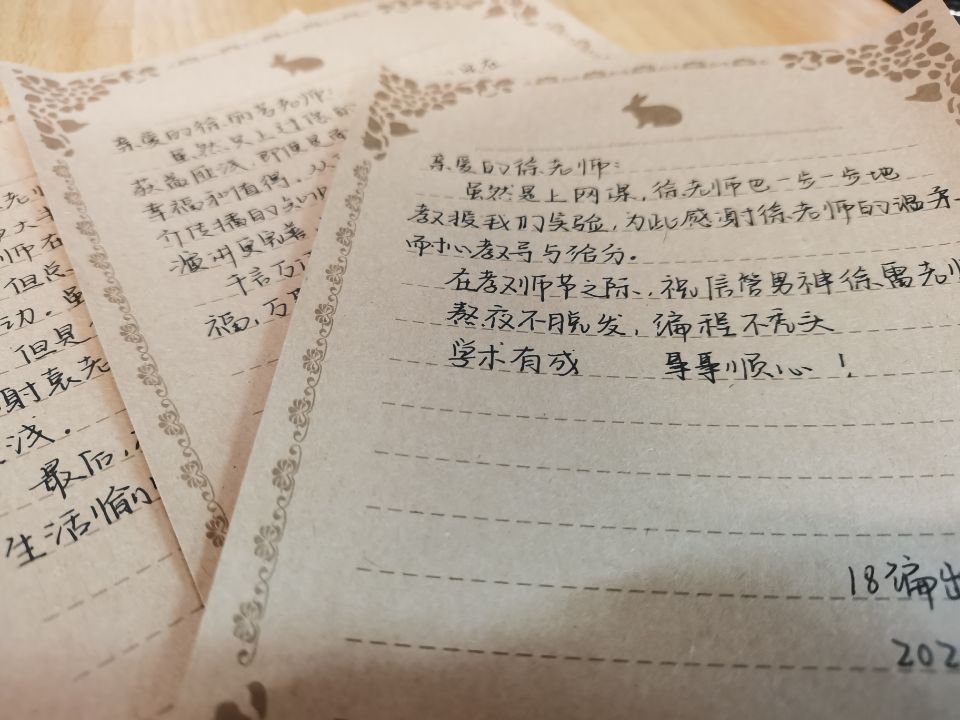 亲爱的徐老师：
虽然是上网课，徐老师也一步一步地
教授我们实验，为此感谢徐老师的温柔
而心教导与给分。
在教师节之际，祝信管男神徐雷老师
熬夜不脱发，编程不秃头
学术有成 事事顺心！
18编出
202
亲爱的徐丽芳老师：
虽然只上过您的
幸福和值得
介传播的
更完善
千言万语
福，万
老师
师在
但总
动。虽
但是
谢袁老
浅。
最后，
生活愉